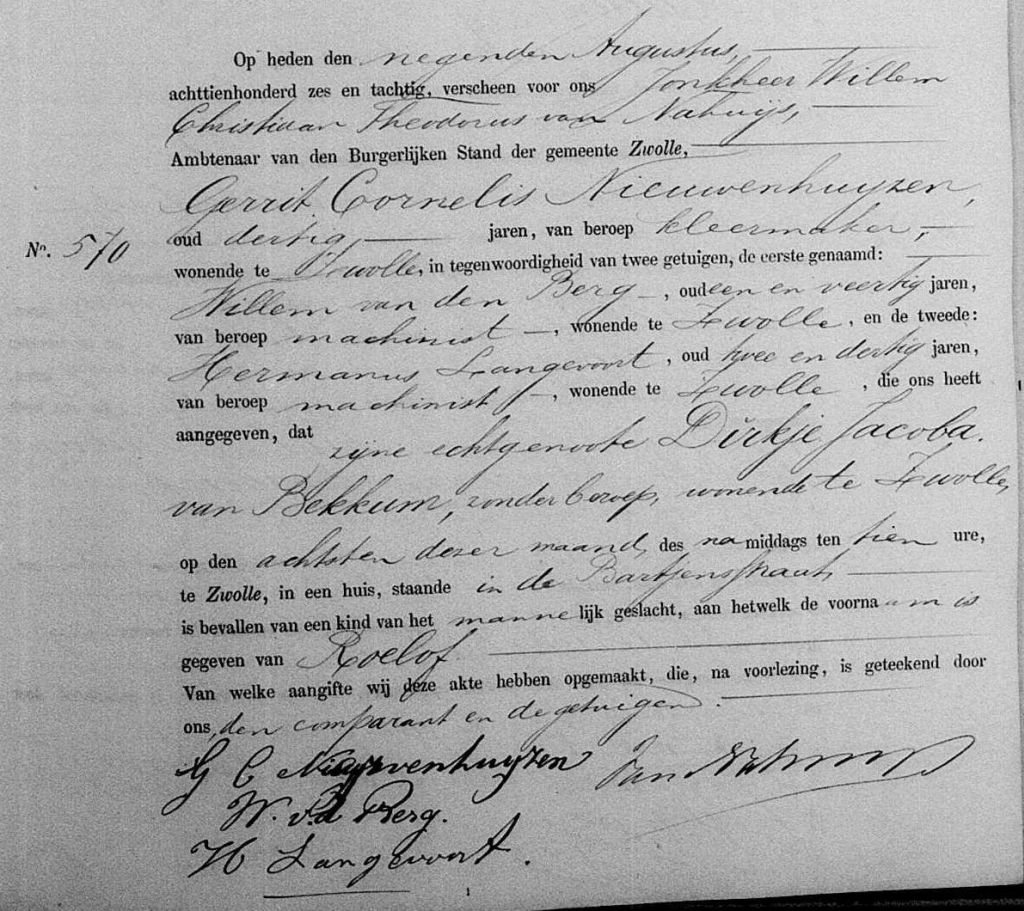 Op heden den negenden Augustus,
achttienhonderd zes en tachtig, verscheen voor ons Jonkheer Willem
Christiaan Theodorus van Nahuijs,
Ambtenaar van den Burgerlijken Stand der gemeente Zwolle,
Gerrit Cornelis Nieuwenhuyzen,
No. 570
oud dertig, jaren, van beroep kleermaker,
wonende te Zwolle, in tegenwoordigheid van twee getuigen, de eerste genaamd:
Willem van den Berg, oud een en veertig jaren,
van beroep machinist, wonende te Zwolle, en de tweede:
Hermanus Langevoort, oud twee en dertig jaren,
van beroep machinist, wonende te Zwolle, die ons heeft
aangegeven, dat zijne echtgenoote Dirkje Jacoba
van Bekkum, zonder beroep, wonende te Zwolle,
op den achtsten dezer maand, des namiddags ten tien ure,
te Zwolle, in een huis, staande in de Bartjensstraat,
is bevallen van een kind van het mannelijk geslacht, aan hetwelk de voornaam is
gegeven van Roelof
Van welke aangifte wij deze akte hebben opgemaakt, die, na voorlezing, is geteekend door
ons, den comparant en de getuigen.
G C Nieuwenhuyzen Van Nahuys
W. v. d Berg.
H Langevoort.